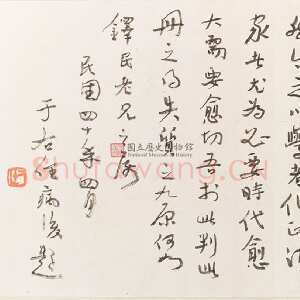 家此尤為必要時代愈
大需要愈切吾於此判此
冊之得失質九原何如
鐸民老兄之屬
民國四十年四月
于右任病後題
國立歷史博物館
National Museum of History
Shufawang.cn